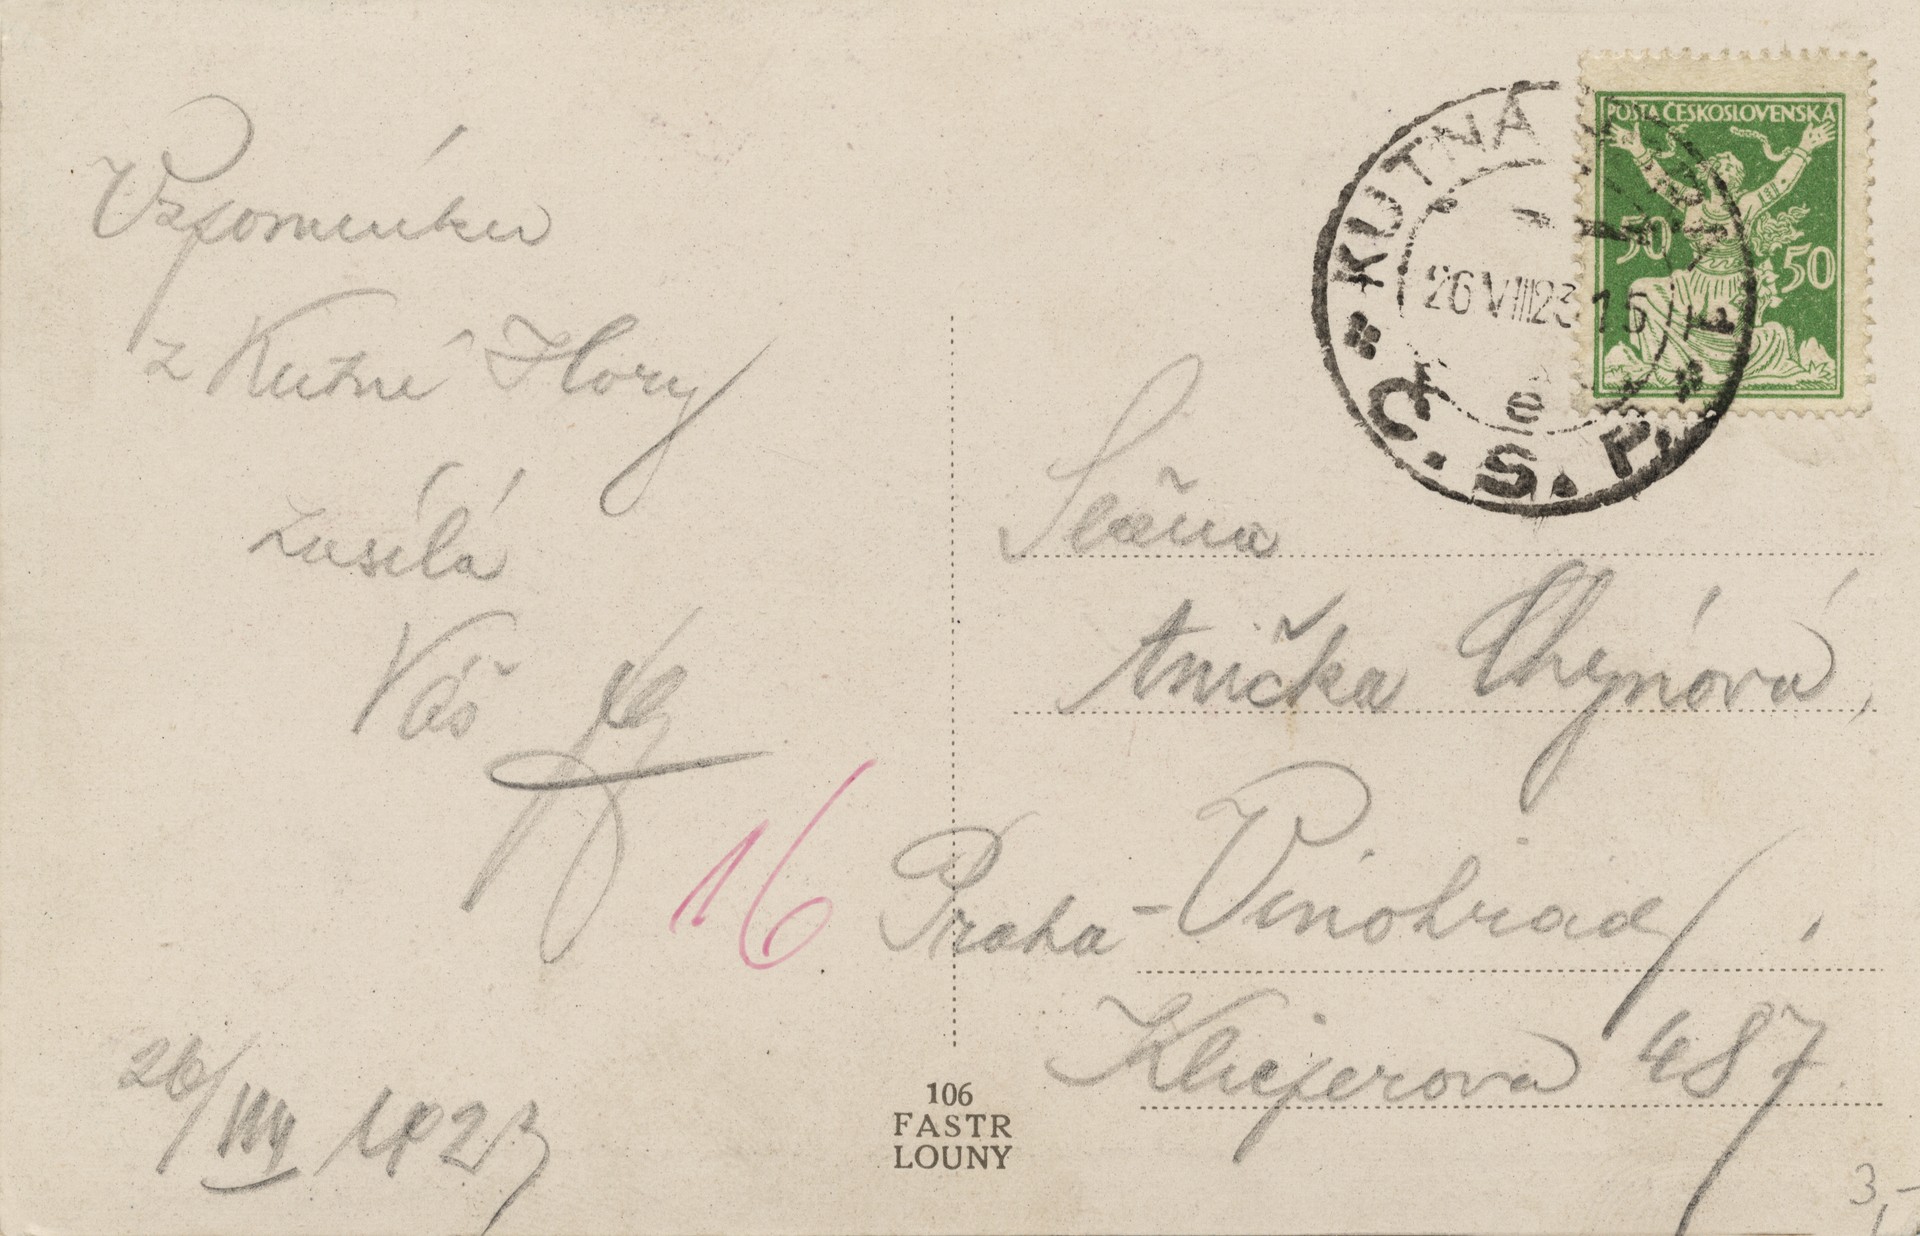 Vzpomínku
z Kutné Hory
zasílá
Váš
26/VIII 1923
16
106
FASTR
LOUNY
POŠTA ČESKOSLOVENSKÁ
50 50
KUTNÁ HORA 1
26 VIII 23 15
e
Č.S.P.
Slečna
Anička Chynová,
Praha - Vinohrady,
Klicperova 487
3,-